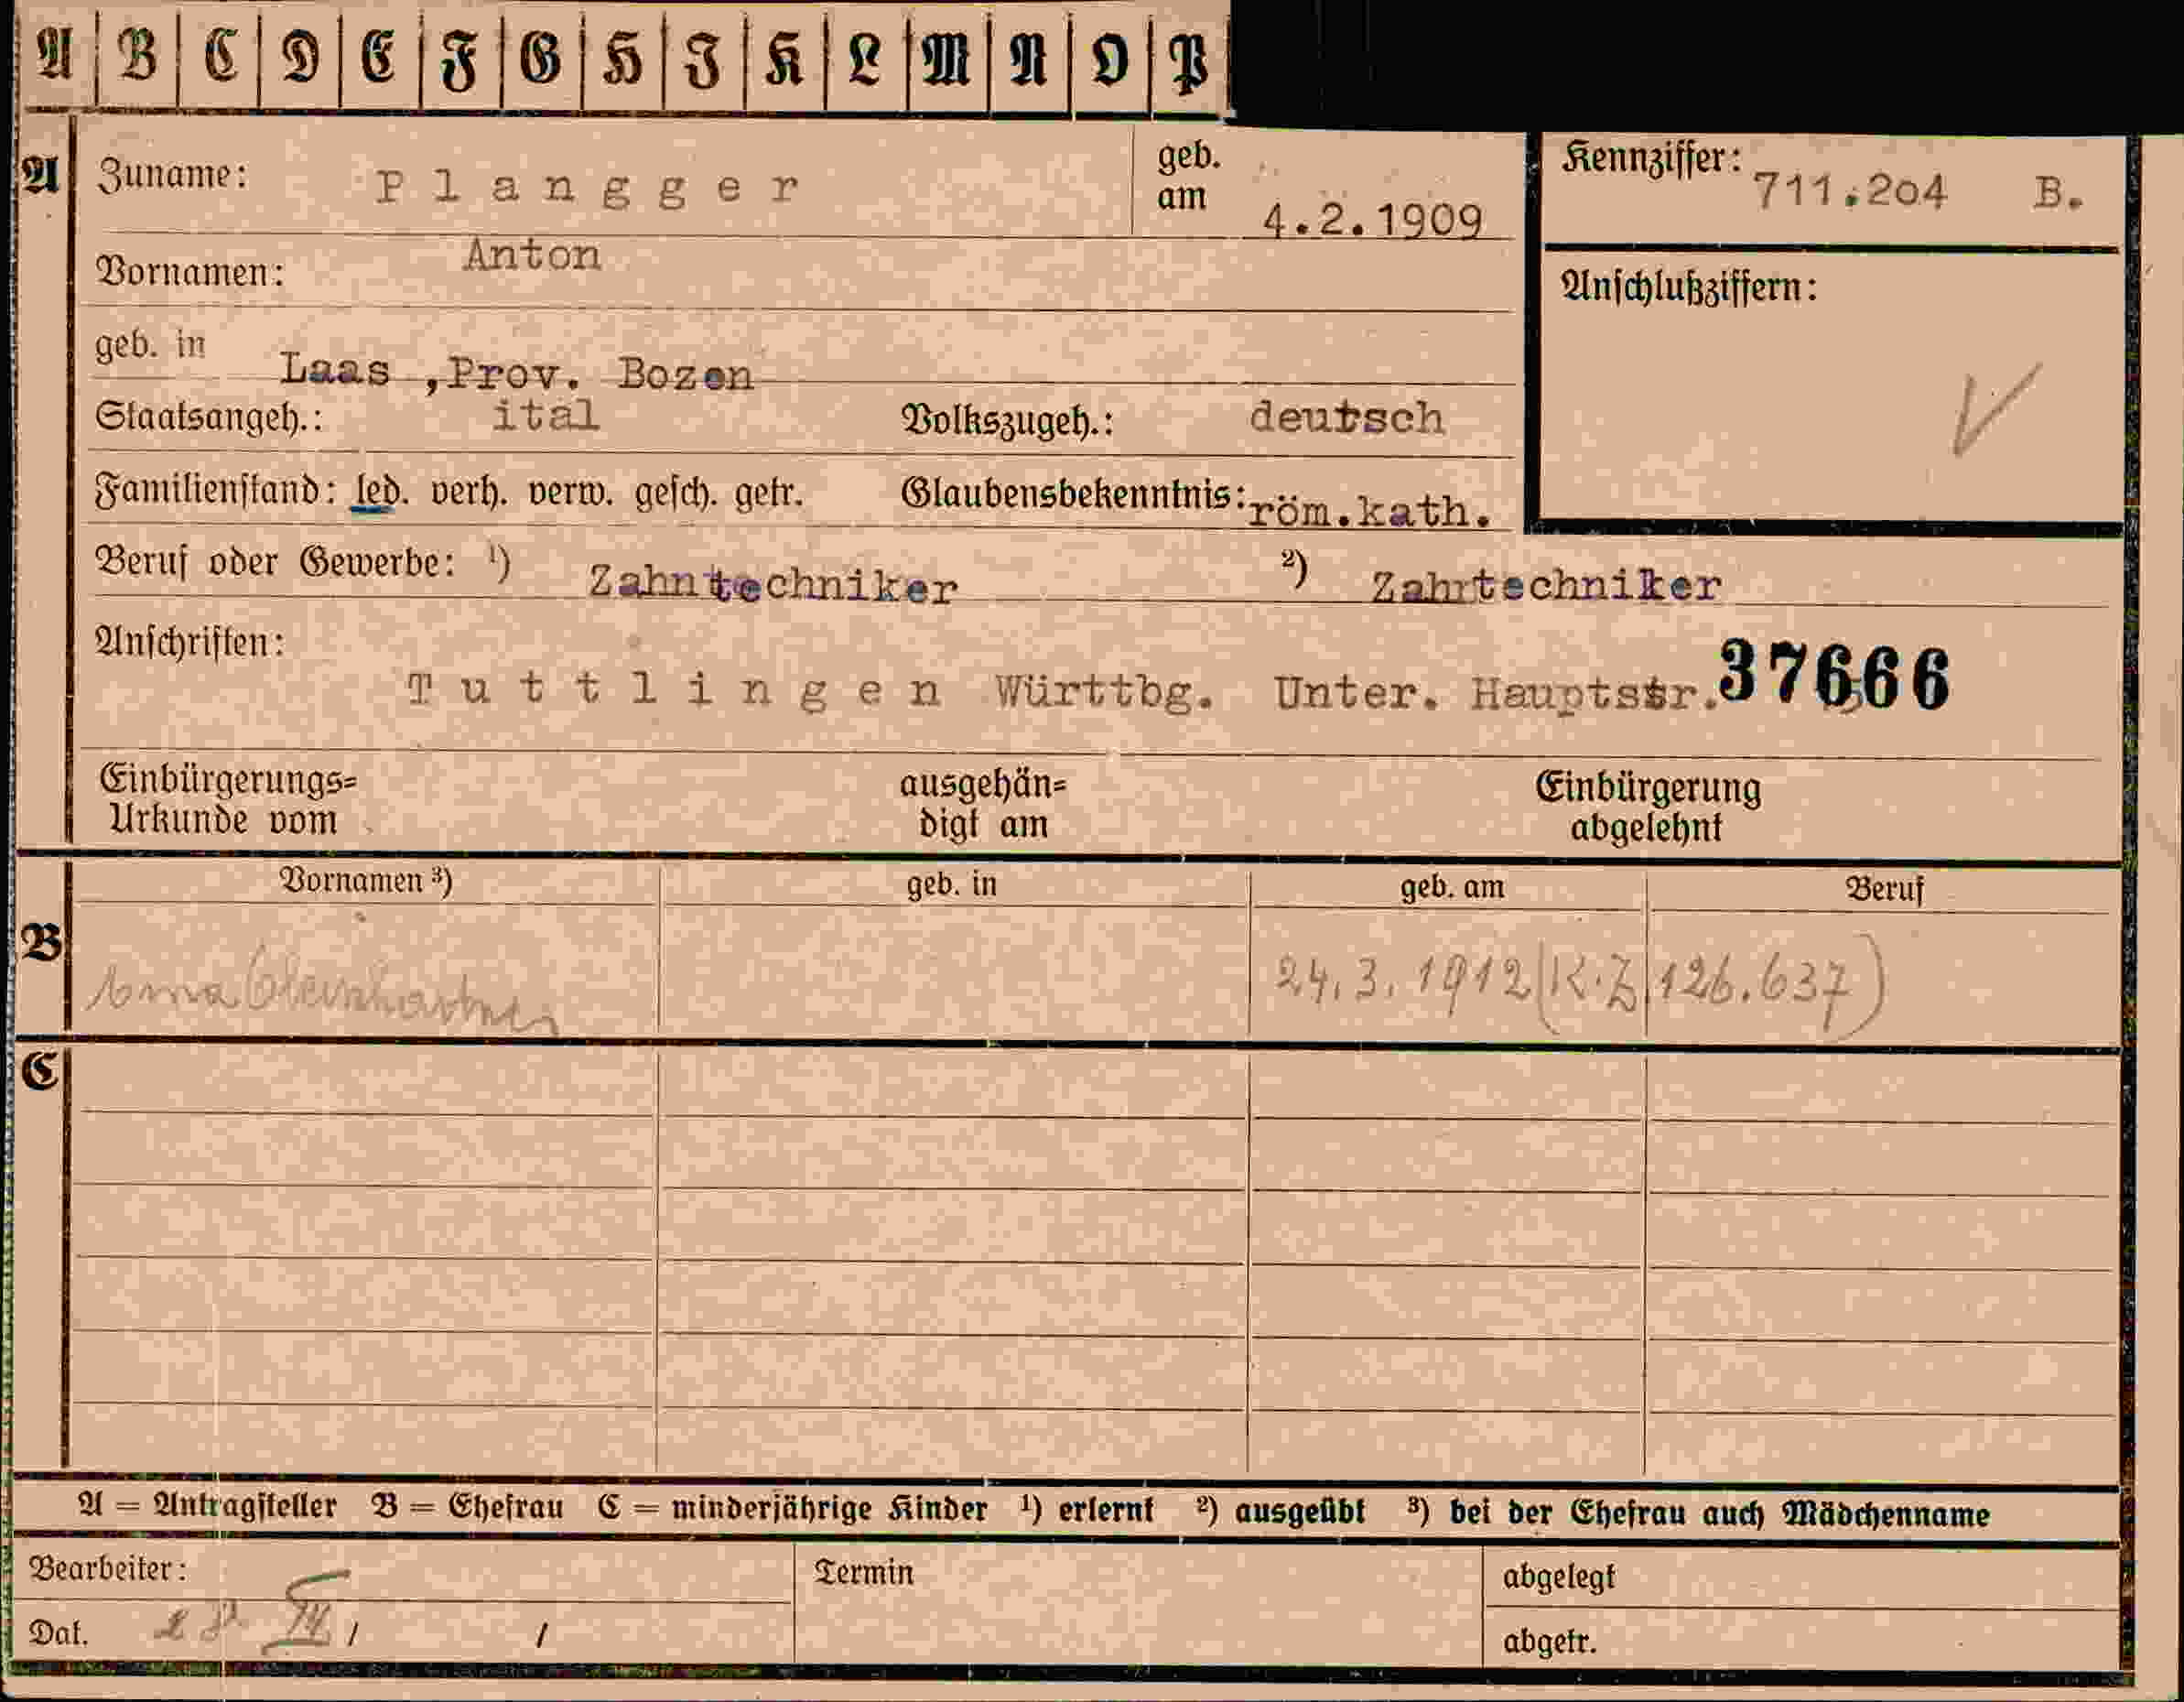 A B C D E F G H I K L M N O P
A Zuname: Plangger geb. am 4.2.1909 Kennziffer: 711.204 B.
Vornamen: Anton
Anschlußziffern:
geb. in Laas ,Prov. Bozen
Staatsangeh.: ital Volkszugeh.: deutsch
Familienstand: led. verh. verw. gesch. getr. Glaubensbekenntnis: röm.kath.
Beruf oder Gewerbe: ¹) Zahntechniker ²) Zahntechniker
Anschriften:
Tuttlingen Württbg. Unter. Hauptstr. 37666
Einbürgerungs= Urkunde vom ausgehän= digt am Einbürgerung abgelehnt
Vornamen ³) geb. in geb. am Beruf
B 24.3.1912 (K.Z 126.637)
C
A = Antragsteller B = Ehefrau C = minderjährige Kinder ¹) erlernt ²) ausgeübt ³) bei der Ehefrau auch Mädchenname
Bearbeiter: Termin abgelegt
Dat. / / abgetr.